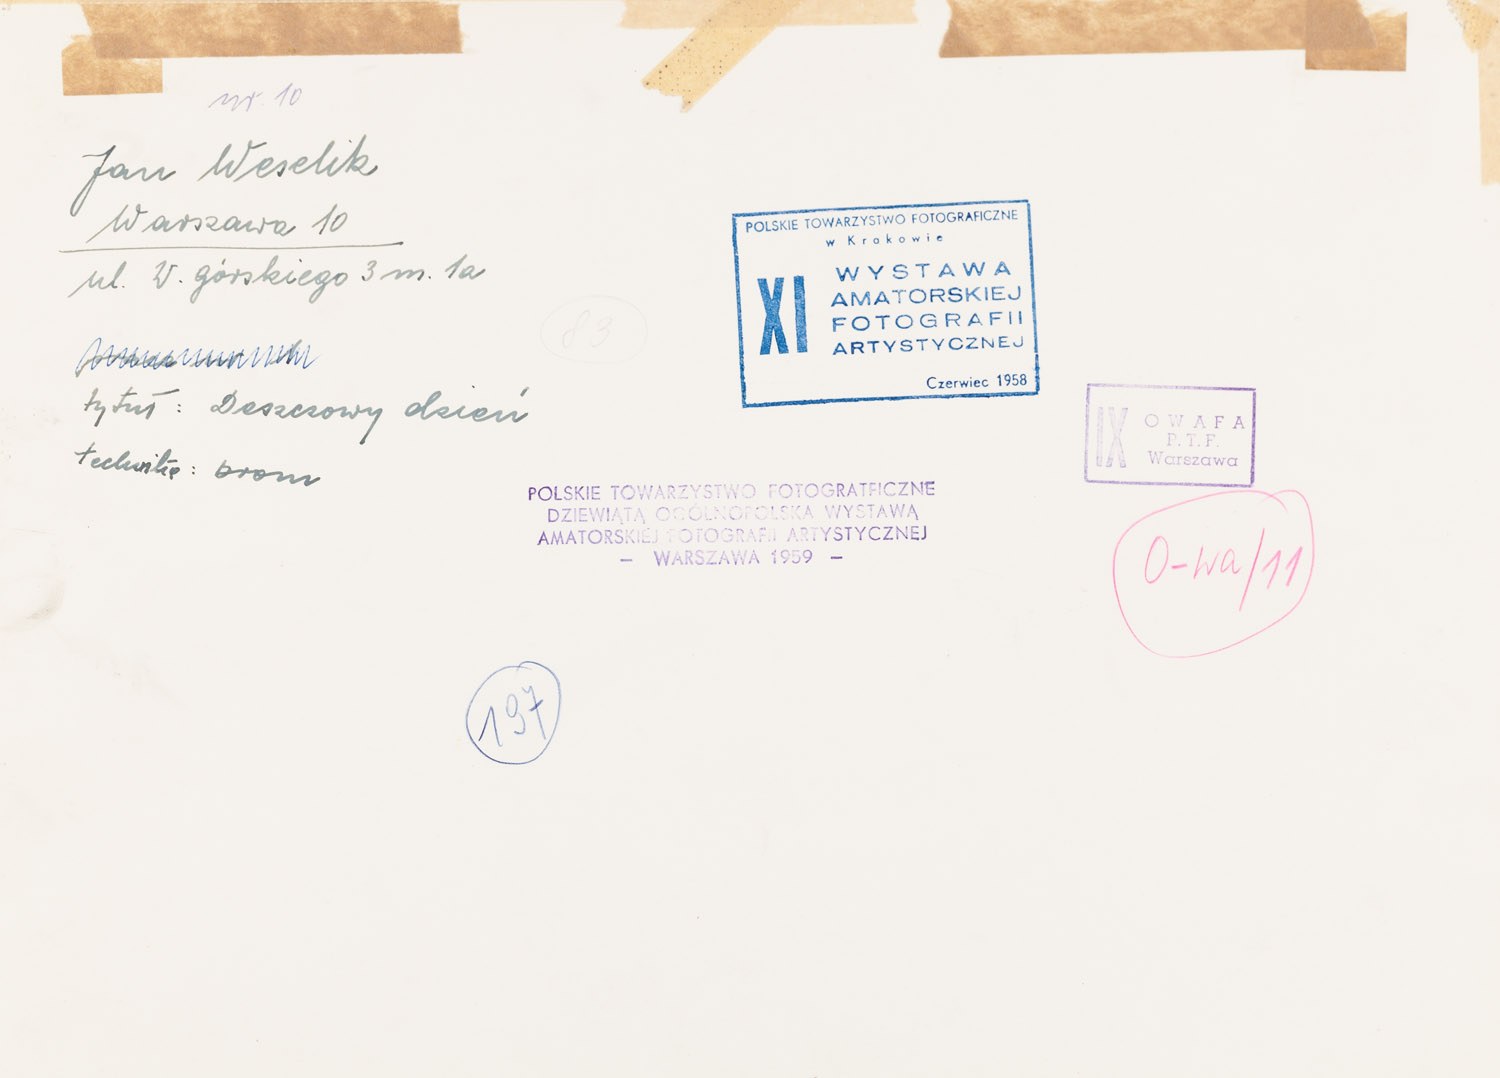 nr. 10
Jan Weselik
Warszawa 10
ul. W. górskiego 3 m. 1a
tytuł: Deszczowy dzień
technika: brom
83
POLSKIE TOWARZYSTWO FOTOGRAFICZNE
w Krakowie
XI
WYSTAWA
AMATORSKIEJ
FOTOGRAFII
ARTYSTYCZNEJ
Czerwiec 1958
IX
OWAFA
P.T.F.
Warszawa
POLSKIE TOWARZYSTWO FOTOGRATFICZNE
DZIEWIĄTA OGÓLNOPOLSKA WYSTAWĄ
AMATORSKIEJ FOTOGRAFII ARTYSTYCZNEJ
— WARSZAWA 1959 —
O-wa/11
197